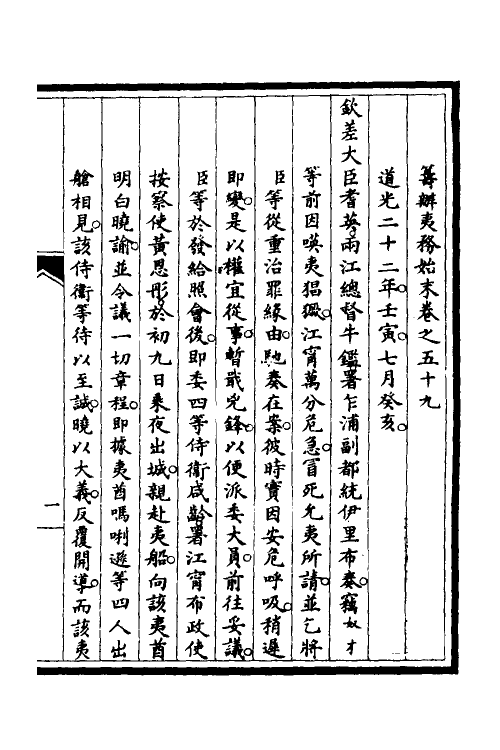 籌辦夷務始末卷之五十九
道光二十二年壬寅。七月癸亥。
欽差大臣耆英兩江總督牛鑑署乍浦副都統伊里布奏。竊奴才
等前因嘆夷猖獗。江甯萬分危急。冒死允夷所請。並乞將
臣等從重治罪緣由。馳奏在案。彼時實因安危呼吸。稍遲
即變。是以權宜從事。暫戢兇鋒。以便派委大員。前往妥議。
臣等於發給照會後。即委四等侍衞咸齡。署江甯布政使
按察使黃恩彤。於初九日乘夜出城。親赴夷船。向該夷酋
明白曉諭。並令議一切章程。即據夷酋嗎唎遜等四人出
艙相見。該侍衞等待以至誠。曉以大義。反覆開導。而該夷
一